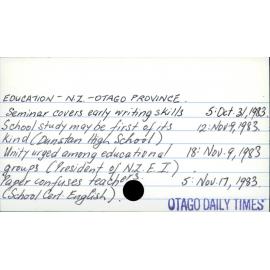 EDUCATION - N.Z. - OTAGO PROVINCE.
Seminar covers early writing skills 5: Oct. 31, 1983.
School study may be first of its 12: Nov. 9, 1983.
kind (Dunstan High School)
Unity urged among educational 18: Nov. 9, 1983
groups (President of N.Z.E.I.)
Paper confuses teachers. 5: Nov. 17, 1983.
(School Cert English).
OTAGO DAILY TIMES